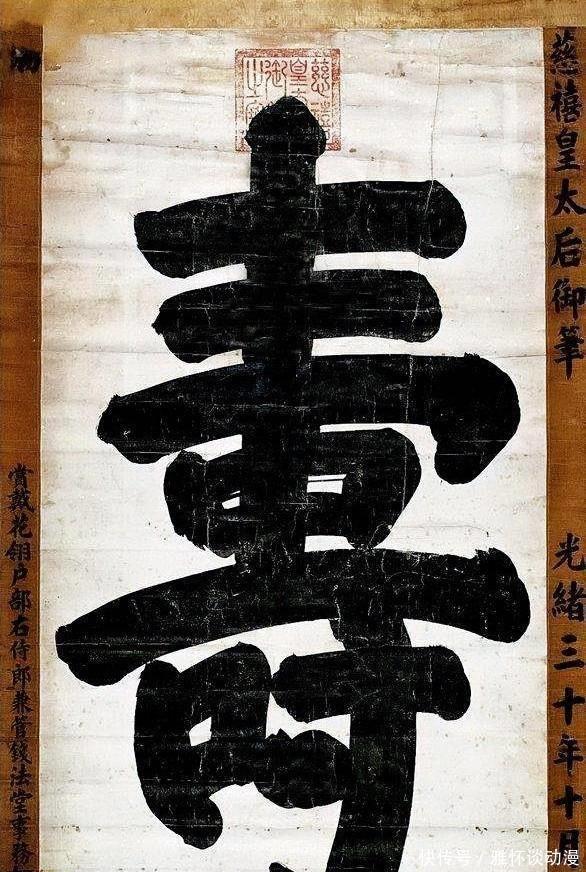 慈禧皇太后御筆
光緒三十年十月
慈禧皇太后御筆之寶
壽
賞戴花翎戶部右侍郎兼管錢法堂事務
快传号 / 雅怀谈动漫